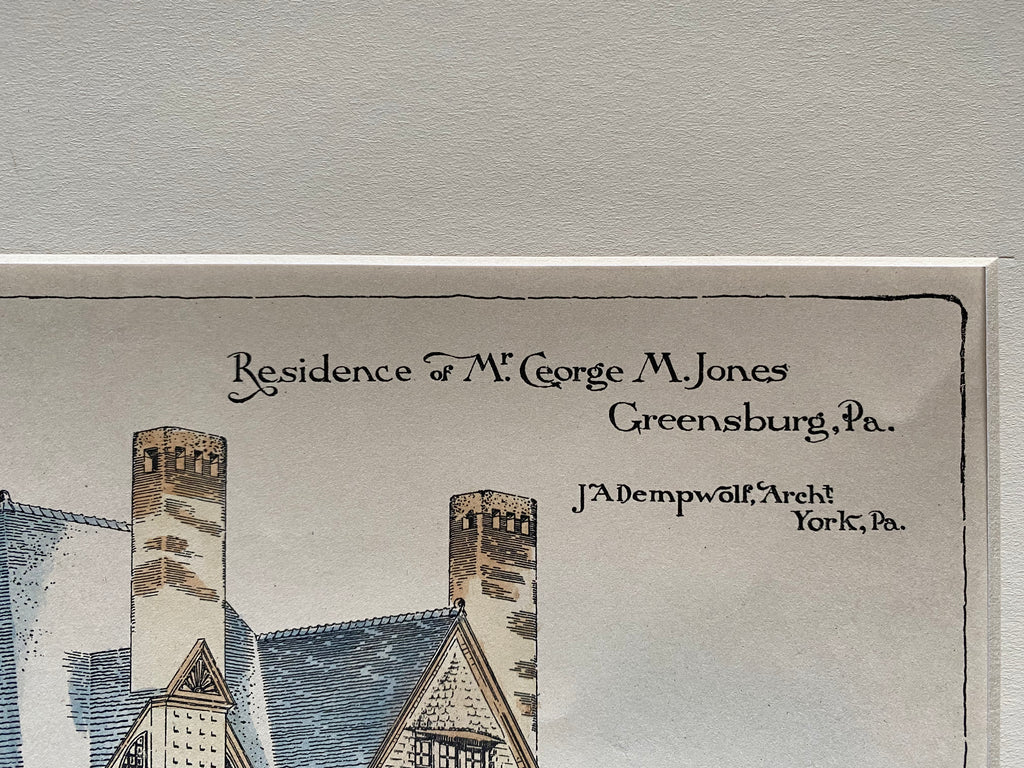 Residence of Mr. George M. Jones
Greensburg, Pa.
J A Dempwolf, Archt.
York, Pa.